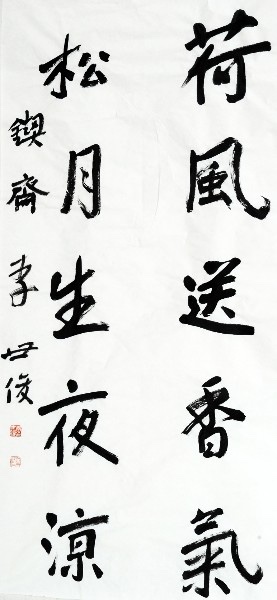 荷風送香氣
松月生夜涼
鍥齋 李世俊